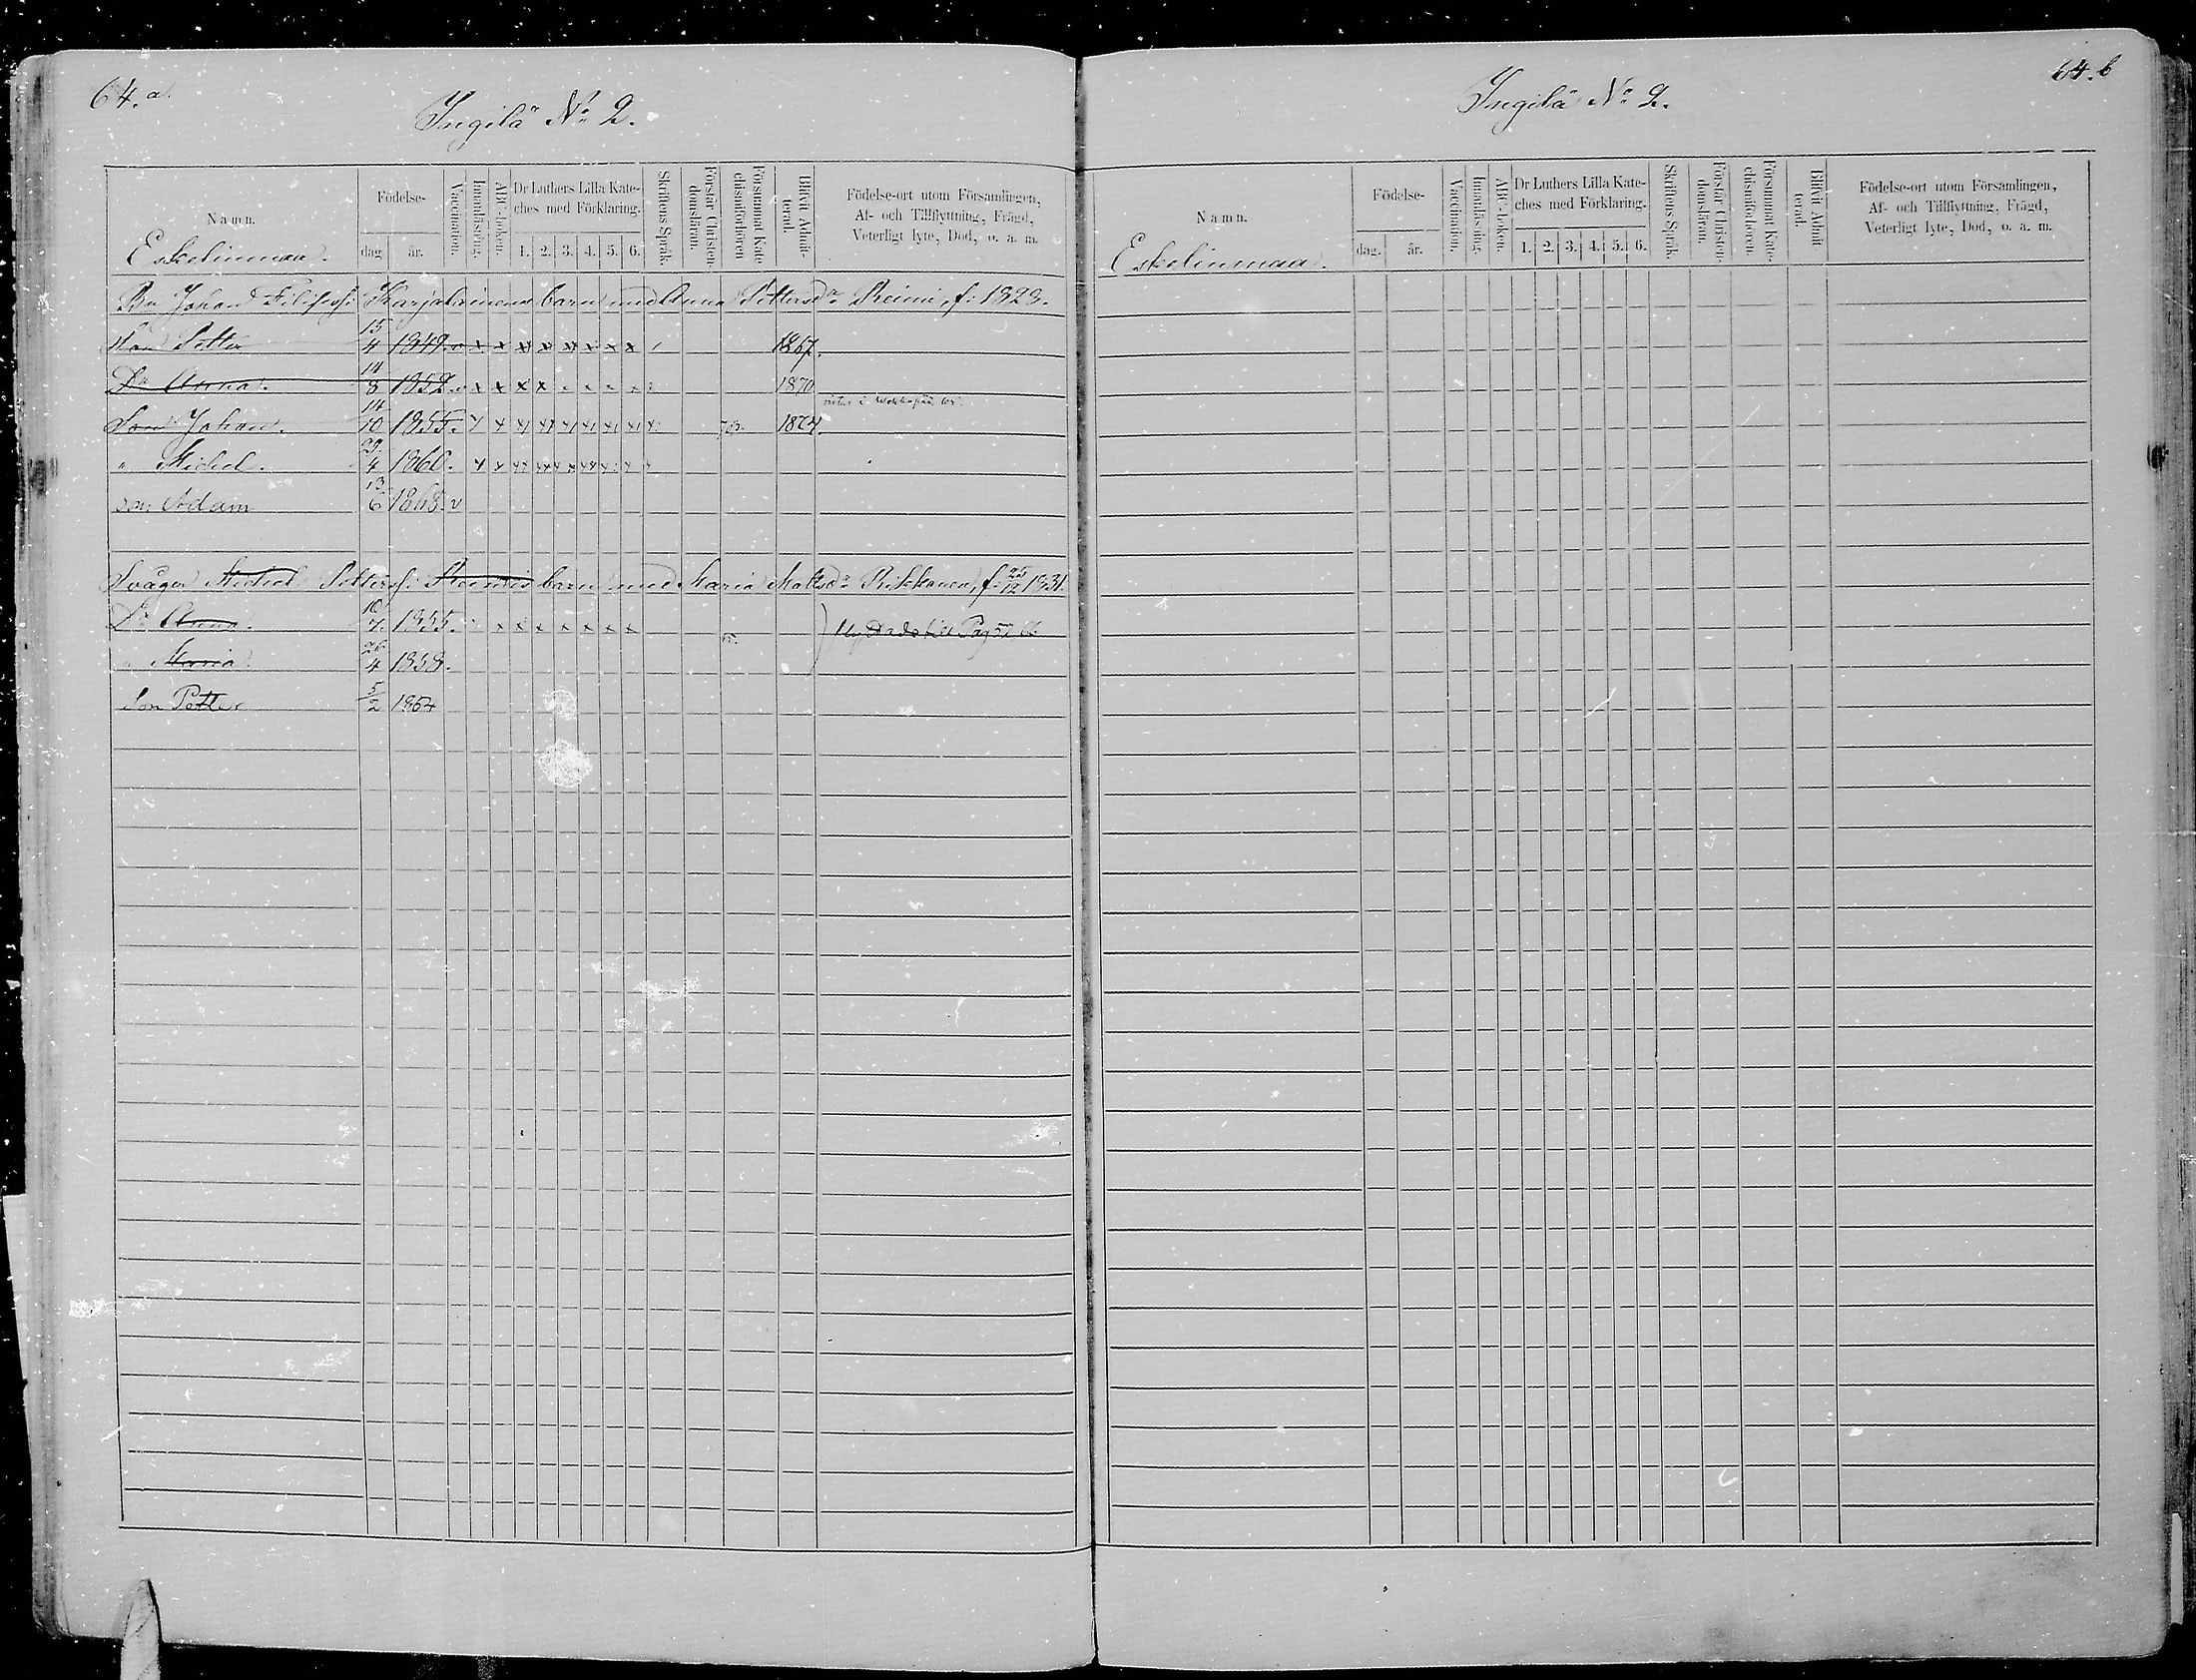 64.a.
Ingilä No 2.
Namn.
Födelse-
dag
år.
Vaccination.
Innanläsning.
ABC-boken.
Dr Luthers Lilla Kate-
ches med Förklaring.
1. 2. 3. 4. 5. 6.
Skriftens Språk.
Förstår Christen-
domsläran.
Försummat Kate-
chismiförhören
Blifvit Admit-
terad.
Födelse-ort utom Församlingen,
Af- och Tillflyttning, Frägd,
Veterligt lyte, Död, o. a. m.
Eskelinmaa.
Johan Filipsf: Karjalainens barn med Anna Pettersdr Reimi, f: 1823.
Son Petter 15/4 1849. v x x x x x x x x 1867.
Dr Anna. 14/8 1852. v x x x x x x x x 1870
Son Johan. 14/10 1855. 1874.
" Michel. 29/4 1860.
son Adam 13/6 1868. v
Svåger Michel Pettersf: Reimis barn med Maria Mattsdr Rikkonen, f: 25/12 1831.
Dr Anna. 10/7 1855. x x x x x x x
" Maria 26/4 1858.
Pag 57
Son Petter 5/2 1864
64.b
Ingilä No 2.
Namn.
Födelse-
dag.
år.
Vaccination.
Innanläsning.
ABC-boken.
Dr Luthers Lilla Kate-
ches med Förklaring.
1. 2. 3. 4. 5. 6.
Skriftens Språk.
Förstår Christen-
domsläran.
Försummat Kate-
chismiförhören.
Blifvit Admit-
terad.
Födelse-ort utom Församlingen,
Af- och Tillflyttning, Frägd,
Veterligt lyte, Död, o. a. m.
Eskelinmaa.